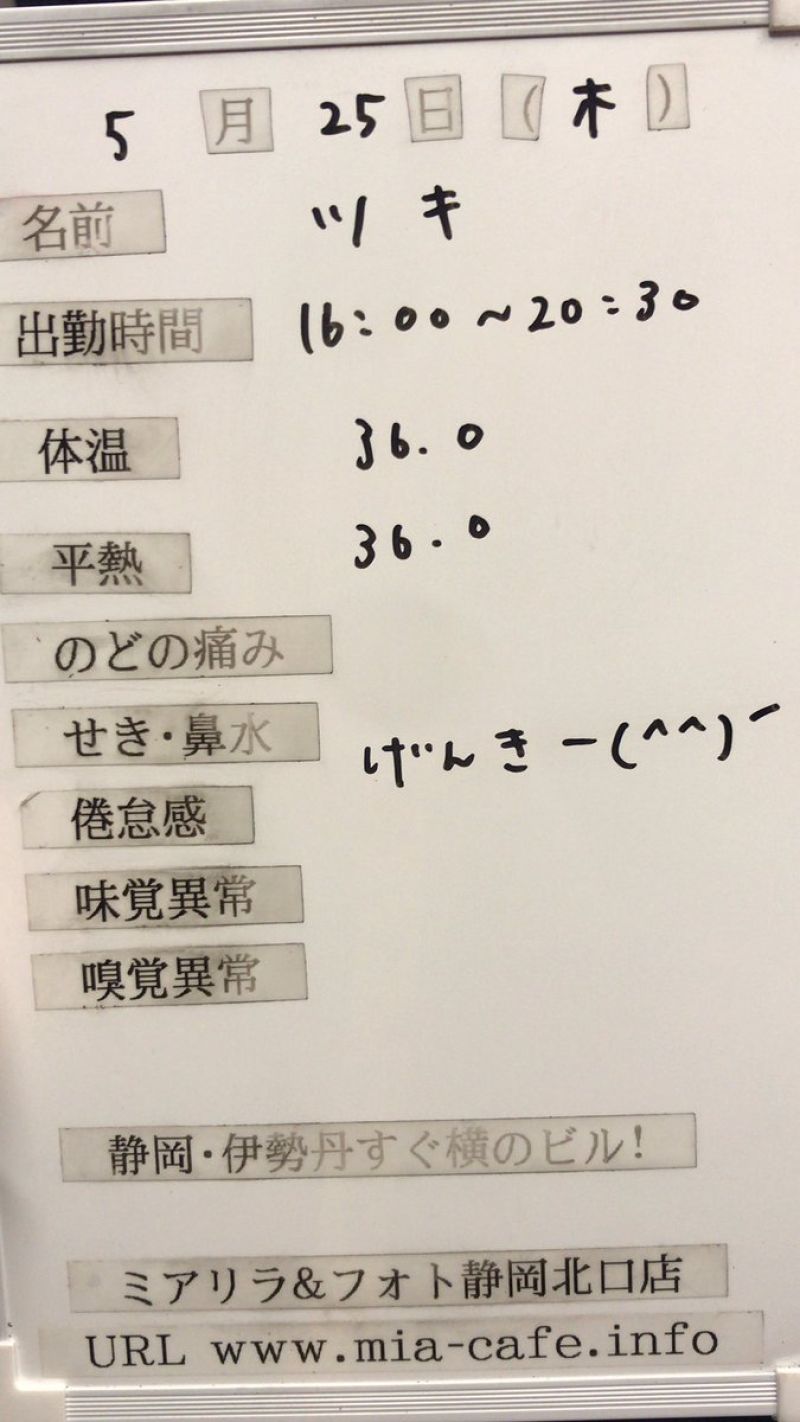 5月25日(木)
名前 ツキ
出勤時間 16:00~20:30
体温 36.0
平熱 36.0
のどの痛み
せき・鼻水 げんきー(^^)´
倦怠感
味覚異常
嗅覚異常
静岡・伊勢丹すぐ横のビル!
ミアリラ&フォト静岡北口店
URL www.mia-cafe.info